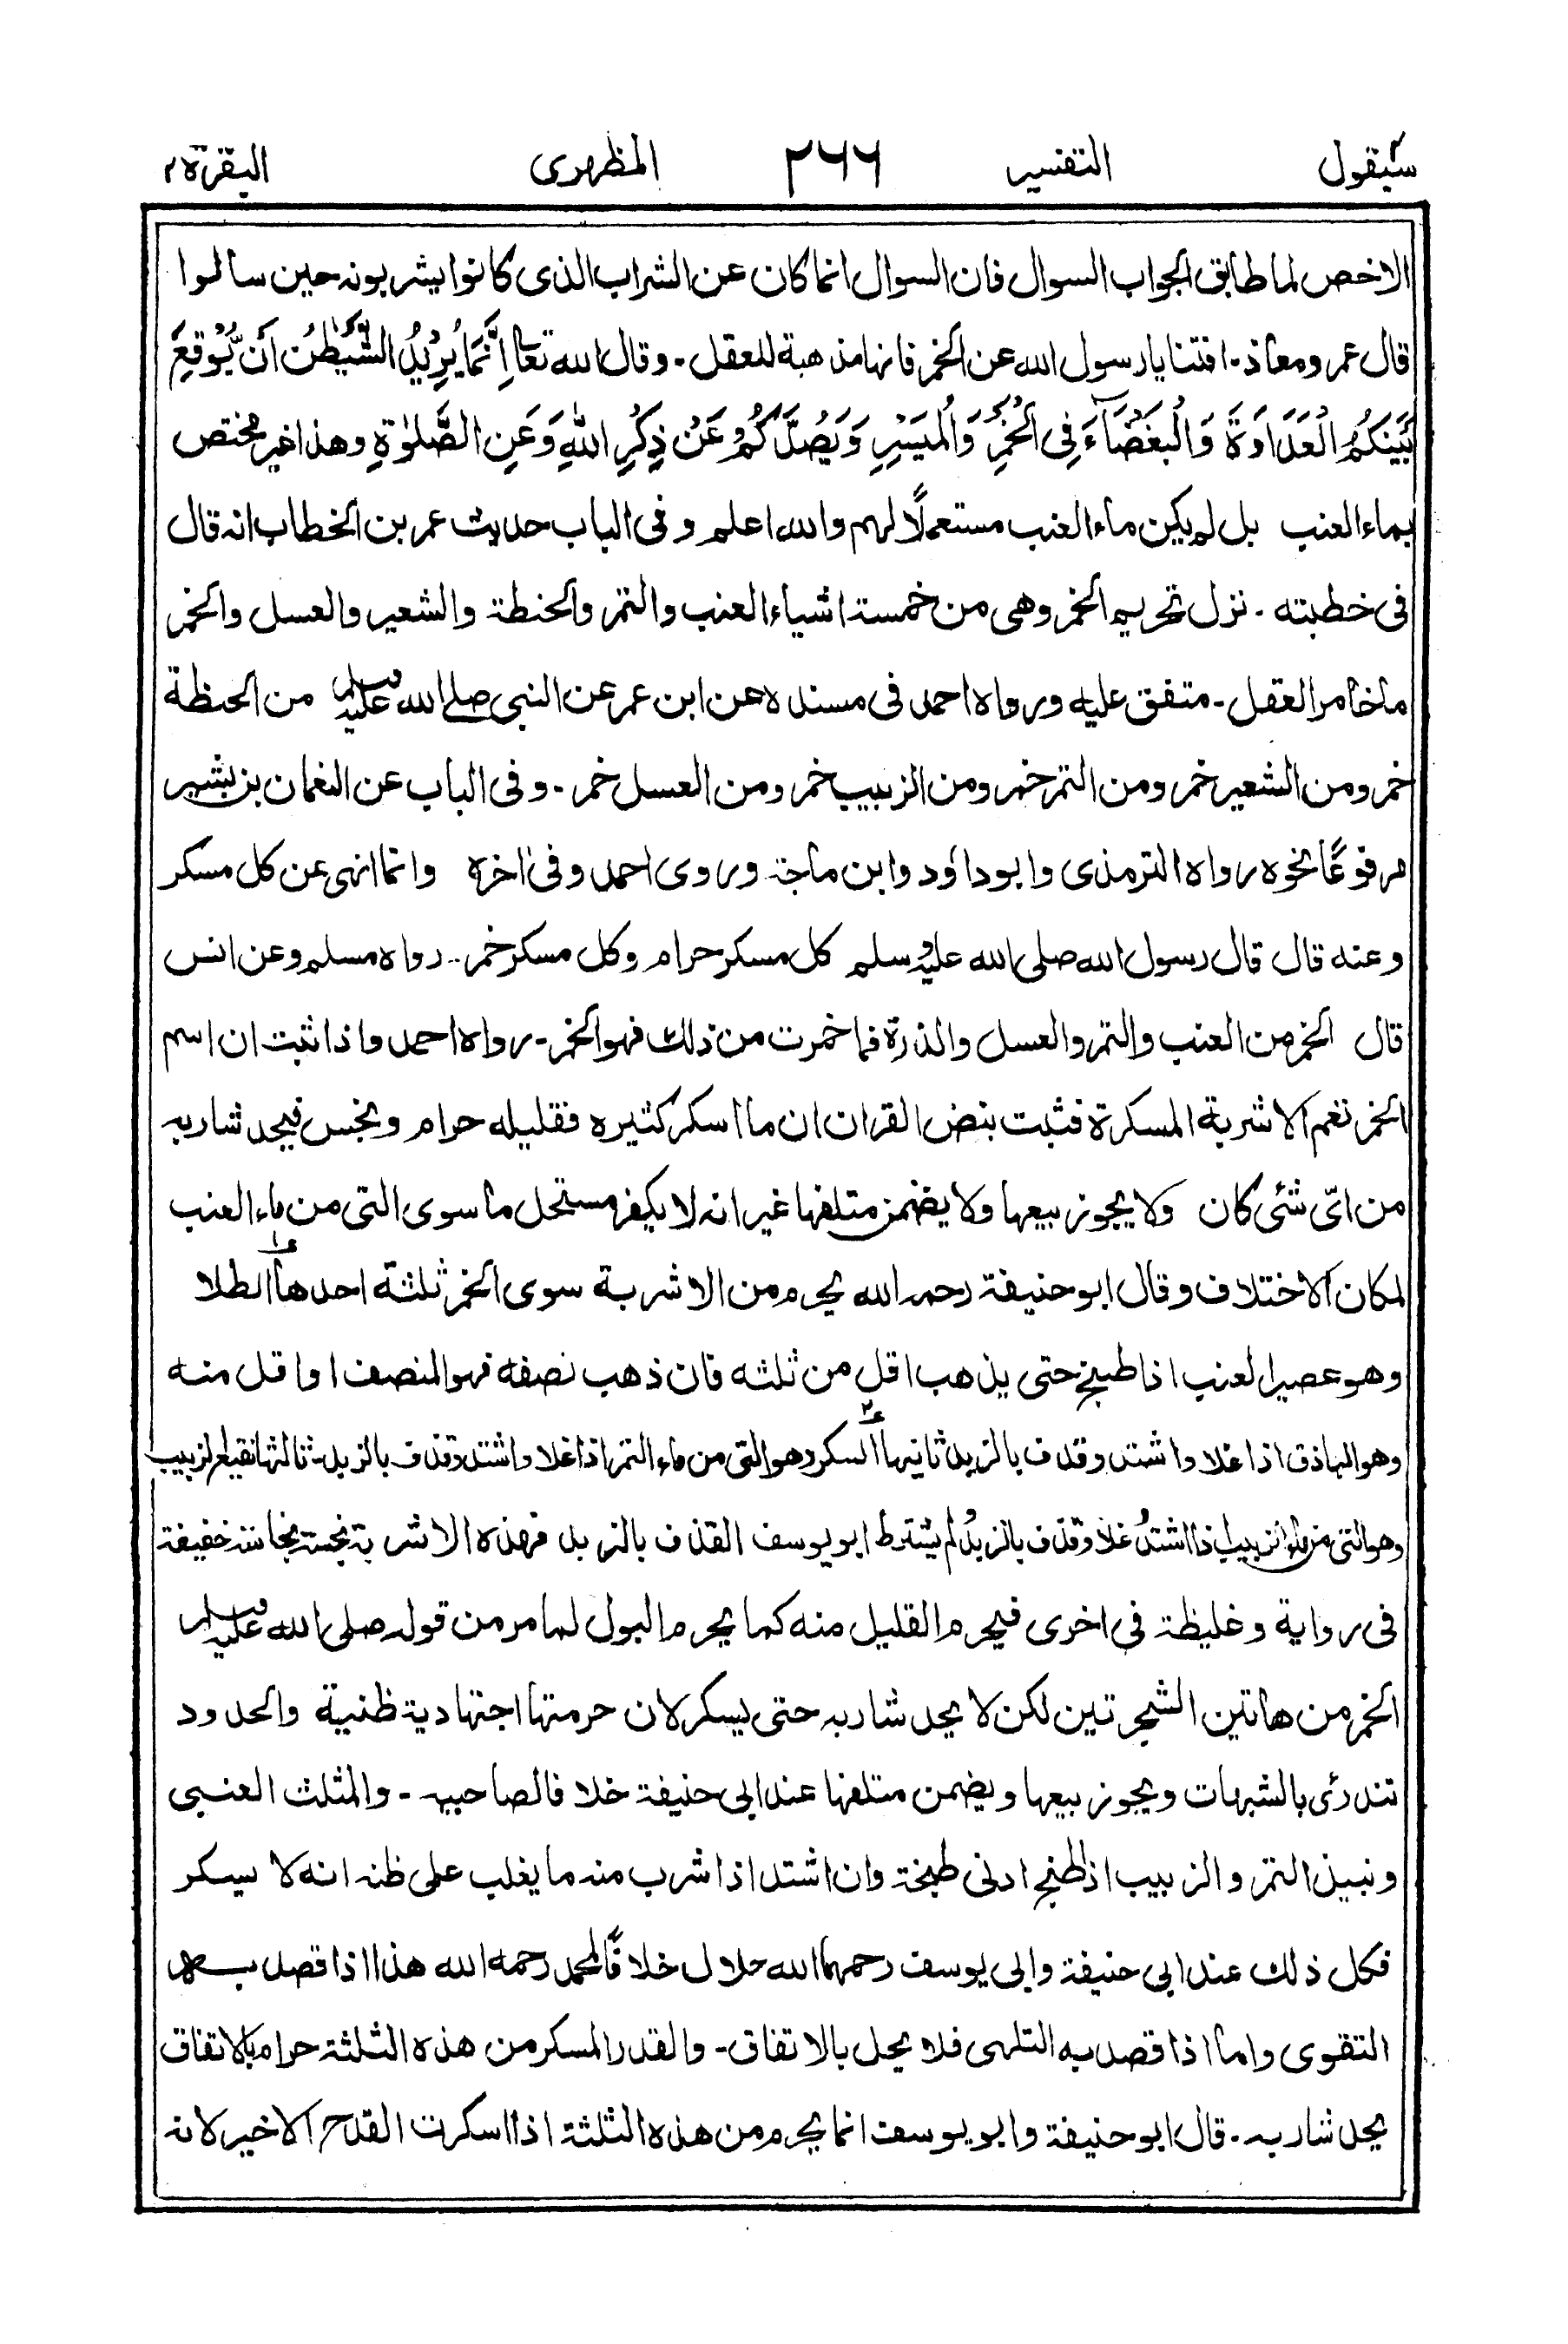 سيقول ٢ التفسير ٢٦٦ المظهرى البقرة ٢
الاخص لما طابق الجواب السوال فان السوال انما كان عن الشراب الذى كانوا يشربونه حين سالوا
قال عمر ومعاذ۔ افتنا يا رسول الله عن الخمر فانها مذهبة للعقل۔ وقال الله تعالى اِنَّمَا يُرِيْدُ الشَّيْطٰنُ اَنْ يُّوْقِعَ
بَيْنَكُمُ الْعَدَاوَةَ وَالْبَغْضَآءَ فِى الْخَمْرِ وَالْمَيْسِرِ وَيَصُدَّكُمْ عَنْ ذِكْرِ اللّٰهِ وَعَنِ الصَّلٰوةِ وهذا غير مختص
بماء العنب بل لم يكن ماء العنب مستعملًا لهم والله اعلم وفى الباب حديث عمر بن الخطاب انه قال
فى خطبته۔ نزل تحريم الخمر وهى من خمسة اشياء العنب والتمر والحنطة والشعير والعسل والخمر
ما خامر العقل۔ متفق عليه ورواه احمد فى مسنده عن ابن عمر عن النبى صلى الله عليه وسلم من الحنطة
خمر ومن الشعير خمر ومن التمر خمر ومن الزبيب خمر ومن العسل خمر۔ وفى الباب عن النعمان بن بشير
مرفوعًا نحوه رواه الترمذى وابو داود وابن ماجة وروى احمد وفى اٰخره وانما انهى عن كل مسكر
وعنه قال قال رسول الله صلى الله عليه وسلم كل مسكر حرام وكل مسكر خمر۔ رواه مسلم وعن انس
قال الخمر من العنب والتمر والعسل والذرة فما خمرت من ذلك فهو الخمر۔ رواه احمد واذا ثبت ان اسم
الخمر تعم الاشربة المسكرة فثبت بنص القران ان ما اسكر كثيره فقليله حرام ونجس فيحد شاربه
من اىّ شئ كان ولا يجوز بيعها ولا يضمن متلفها غير انه لا يكفر مستحل ما سوى التى من ماء العنب
لمكان الاختلاف وقال ابو حنيفة رحمه الله يحرم من الاشربة سوى الخمر ثلثة احدها ١ الطلا
وهو عصير العنب اذا طبخ حتى يذهب اقل من ثلثه فان ذهب نصفه فهو المنصف او اقل منه
وهو الباذق اذا غلا واشتد وقذف بالزبد ثانيها ٢ السكر وهو التى من ماء التمر اذا غلا واشتد وقذف بالزبد۔ ثالثها نقيع الزبيب
وهو التى من ماء الزبيب اذا اشتد وغلا وقذف بالزبد لم يشترط ابو يوسف القذف بالزبد فهذه الاشربة نجسة نجاسة خفيفة
فى رواية وغليظة فى اخرى فيحرم القليل منه كما يحرم البول لما مر من قوله صلى الله عليه وسلم
الخمر من هاتين الشجرتين لكن لا يحد شاربه حتى يسكر لان حرمتها اجتهادية ظنية والحدود
تندرئ بالشبهات ويجوز بيعها ويضمن متلفها عند ابى حنيفة خلافا لصاحبيه۔ والمثلث العنبى
ونبيذ التمر والزبيب اذا طبخ ادنى طبخة وان اشتد اذا شرب منه ما يغلب على ظنه انه لا يسكر
فكل ذلك عند ابى حنيفة وابى يوسف رحمهما الله حلال خلافًا لمحمد رحمه الله هذا اذا قصد به
التقوى واما اذا قصد به التلهى فلا يحل بالاتفاق۔ والقدر المسكر من هذه الثلثة حرام بالاتفاق
يحد شاربه۔ قال ابو حنيفة وابو يوسف انما يحرم من هذه الثلثة اذا اسكرت القدح الاخير لانه